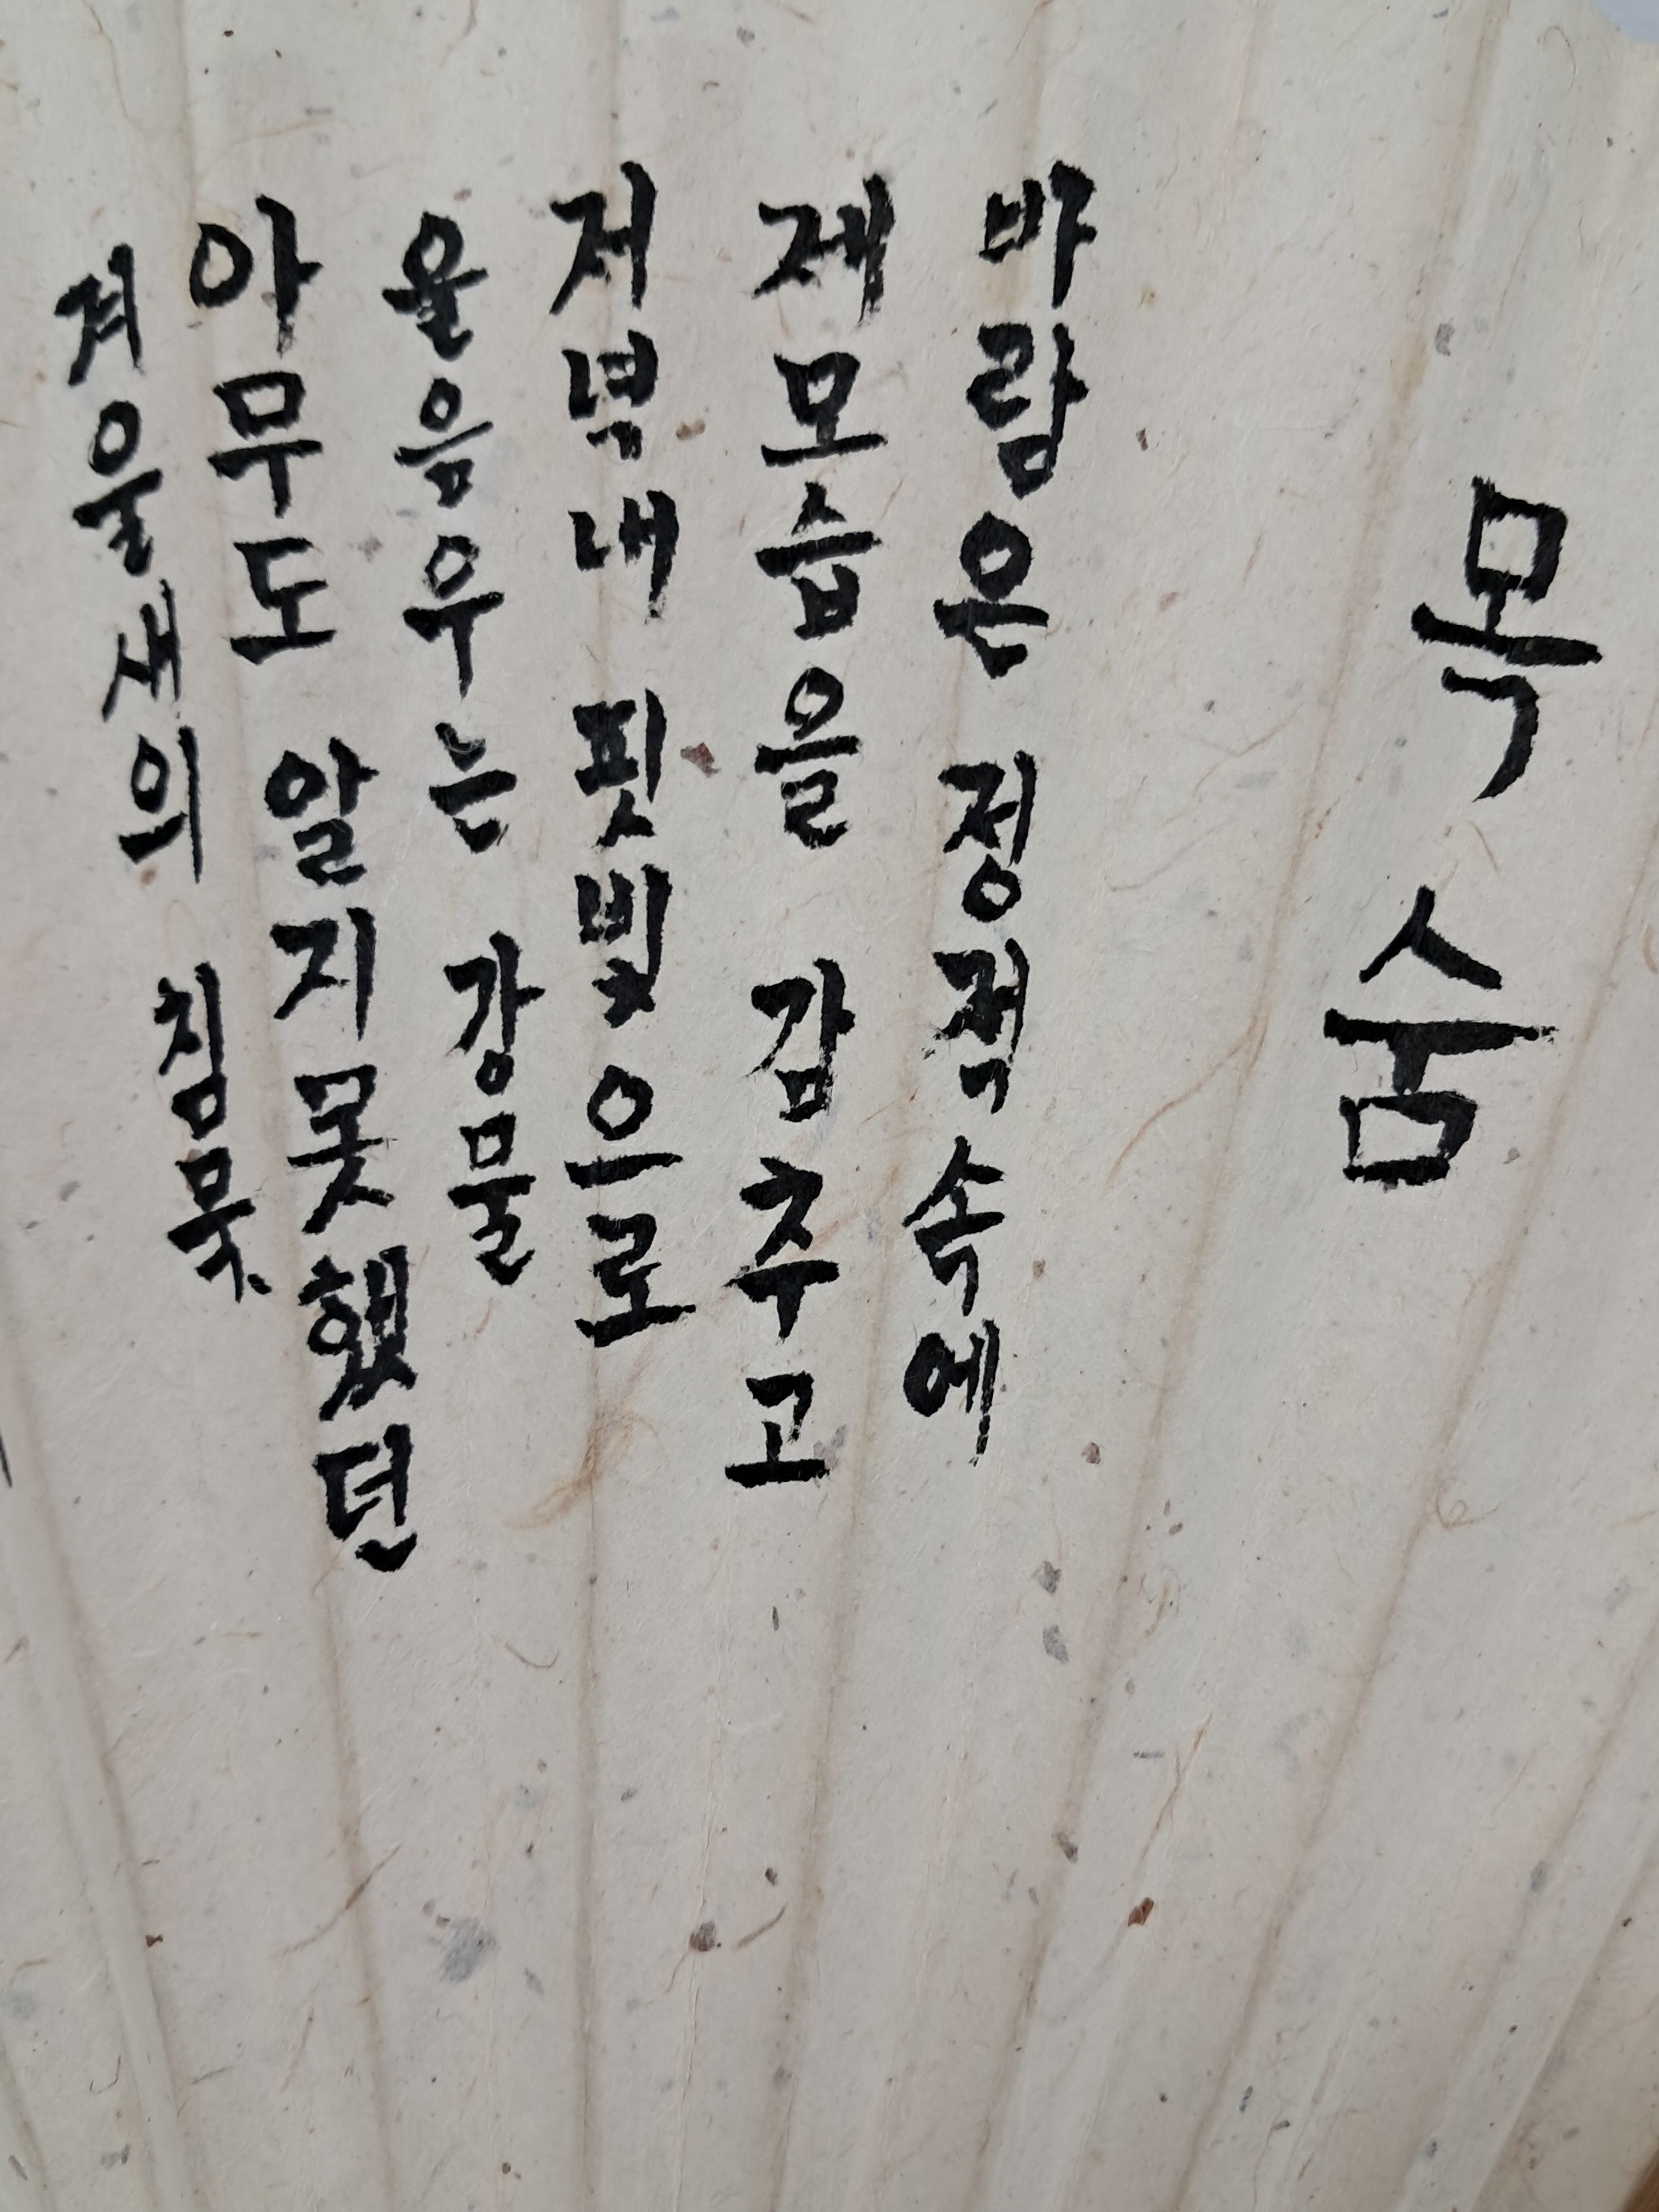 목숨
바람은 정적속에
제모습을 감추고
저녁내 핏빛으로
울음우는 강물
아무도 알지못했던
겨울새의 침묵.